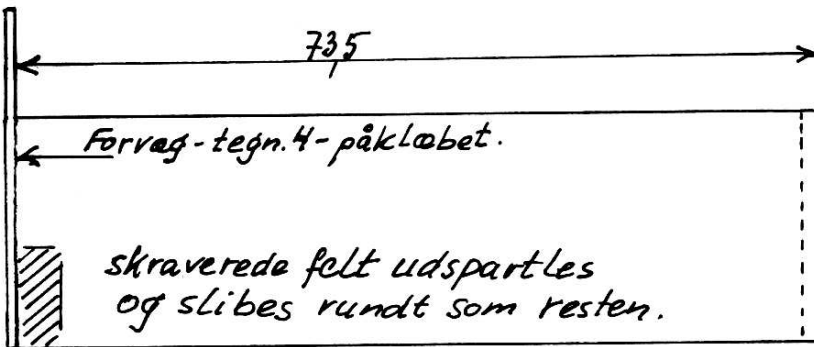 735
Forvæg-tegn.4-påklæbet.
skraverede felt udspartles
og slibes rundt som resten.